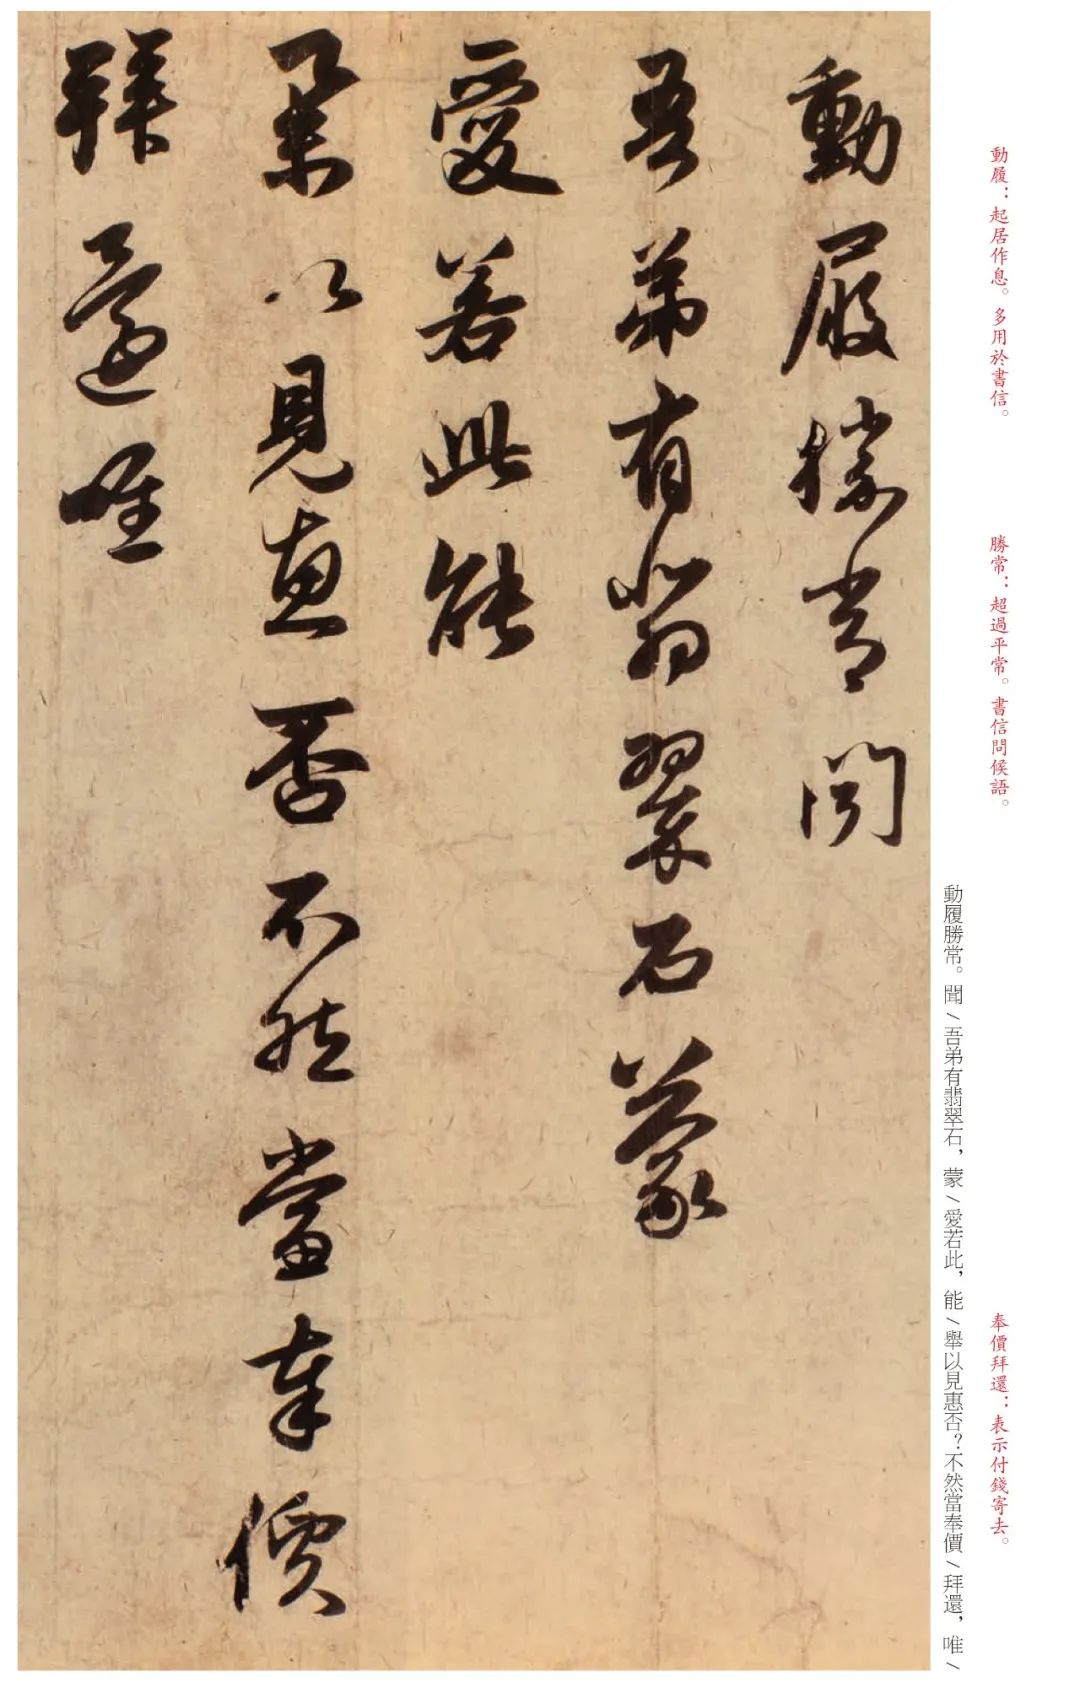 動履：起居作息。多用於書信。
勝常：超過平常。書信問候語。
奉價拜還：表示付錢寄去。
動履勝常。聞／吾弟有翡翠石，蒙／愛若此，能／舉以見惠否？不然當奉價／拜還，唯／
動履勝常聞
吾弟有翡翠石蒙
愛若此能
舉以見惠否不然當奉價
拜還唯